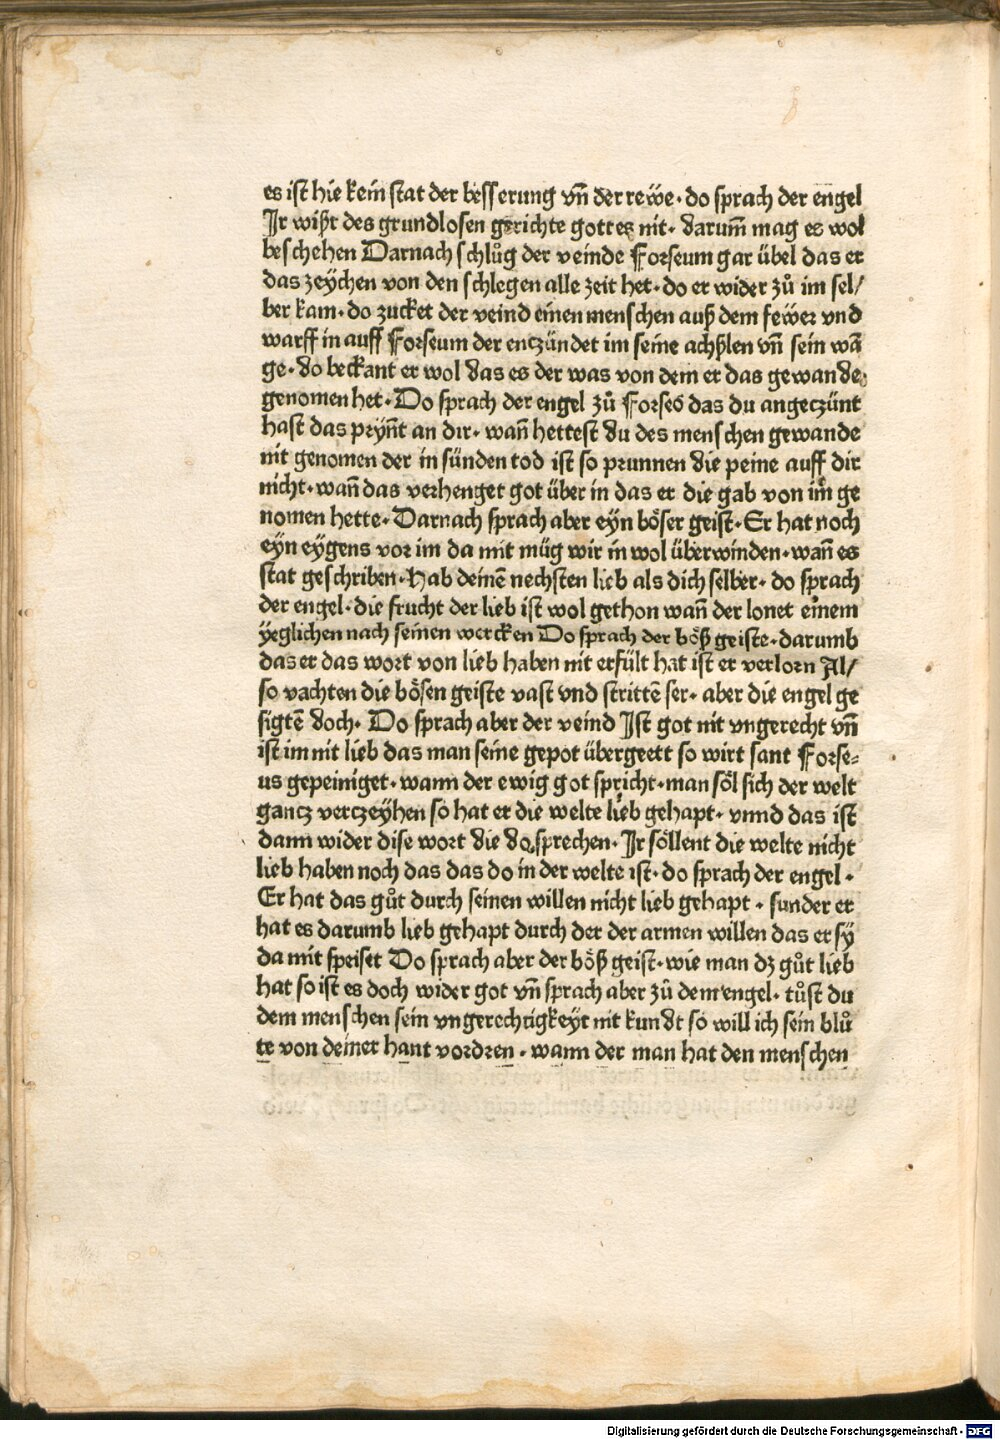 es ist hie kein stat der besserung vñ der rewe· do sprach der engel
Jr wißt des grundlosen gerichte gottes nit· darum̃ mag es wol
beschehen Darnach schlůg der veinde Forseum gar übel das er
das zeychen von den schlegen alle zeit het· do er wider zů im sel/
ber kam· do zucket der veind einen menschen auß dem fewer vnd
warff in auff Forseum der entzündet im seine achßlen vñ sein wā
ge· do beckant er wol das es der was von dem er das gewande
genomen het· Do sprach der engel zů Forseo das du angeczünt
hast das pryñt an dir· wañ hettest du des menschen gewande
nit genomen der in sünden tod ist so prunnen die peine auff dir
nicht· wañ das verhenget got über in das er die gab von im ge
nomen hette· Darnach sprach aber eyn böser geist· Er hat noch
eyn eygens vor im da mit müg wir in wol überwinden· wañ es
stat geschriben· Hab deinē nechsten lieb als dich selber· do sprach
der engel· die frucht der lieb ist wol gethon wañ der lonet einem
yeglichen nach seinen wercken Do sprach der böß geiste· darumb
das er das wort von lieb haben nit erfült hat ist er verlorn Al/
so vachten die bösen geiste vast vnd strittē ser· aber die engel ge
sigtē doch· Do sprach aber der veind Jst got nit vngerecht vñ
ist im nit lieb das man seine gepot übergeett so wirt sant Forse-
us gepeiniget· wann der ewig got spricht· man söl sich der welt
gantz verczeyhen so hat er die welte lieb gehapt· vnnd das ist
dann wider dise wort die do sprechen· Jr söllent die welte nicht
lieb haben noch das das do in der welte ist· do sprach der engel·
Er hat das gůt durch seinen willen nicht lieb gehapt· sunder er
hat es darumb lieb gehapt durch der der armen willen das er sy
da mit speiset Do sprach aber der böß geist· wie man dz gůt lieb
hat so ist es doch wider got vñ sprach aber zů dem engel· tůst du
dem menschen sein vngerechtigkeyt nit kundt so will ich sein blů
te von deiner hant vordren· wann der man hat den menschen
Digitalisierung gefördert durch die Deutsche Forschungsgemeinschaft - DFG